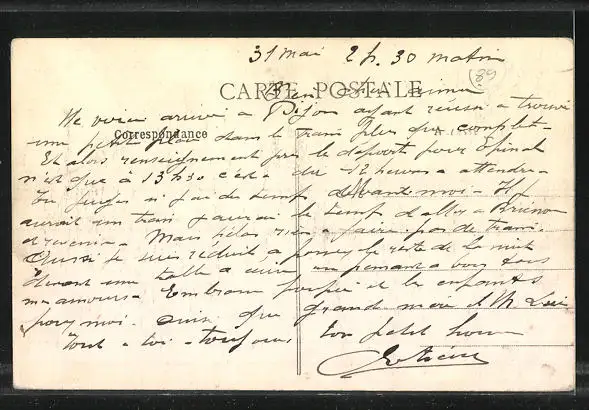 31 mai 2 h. 30 matin
89
CARTE POSTALE
Bien chère aimée
Me voici arrivé à Dijon ayant réussi à trouver
une petite place dans le train plus que complet.
Correspondance
Et alors renseignement pris le départ pour Epinal
n'est que à 13h30 c'est à dire heures à attendre.
Tu juges si j'ai du temps devant moi. Il y
aurait un train j'aurais le temps d'aller à
et revenir. Mais hélas rien à faire pas de train.
Aussi je suis réduit à passer le reste de la nuit
devant une table à en pensant à vous tous
mes amours. Embrasse et les enfants
grand mère et M.
pour moi. que
ton petit homme
tout à toi toujours